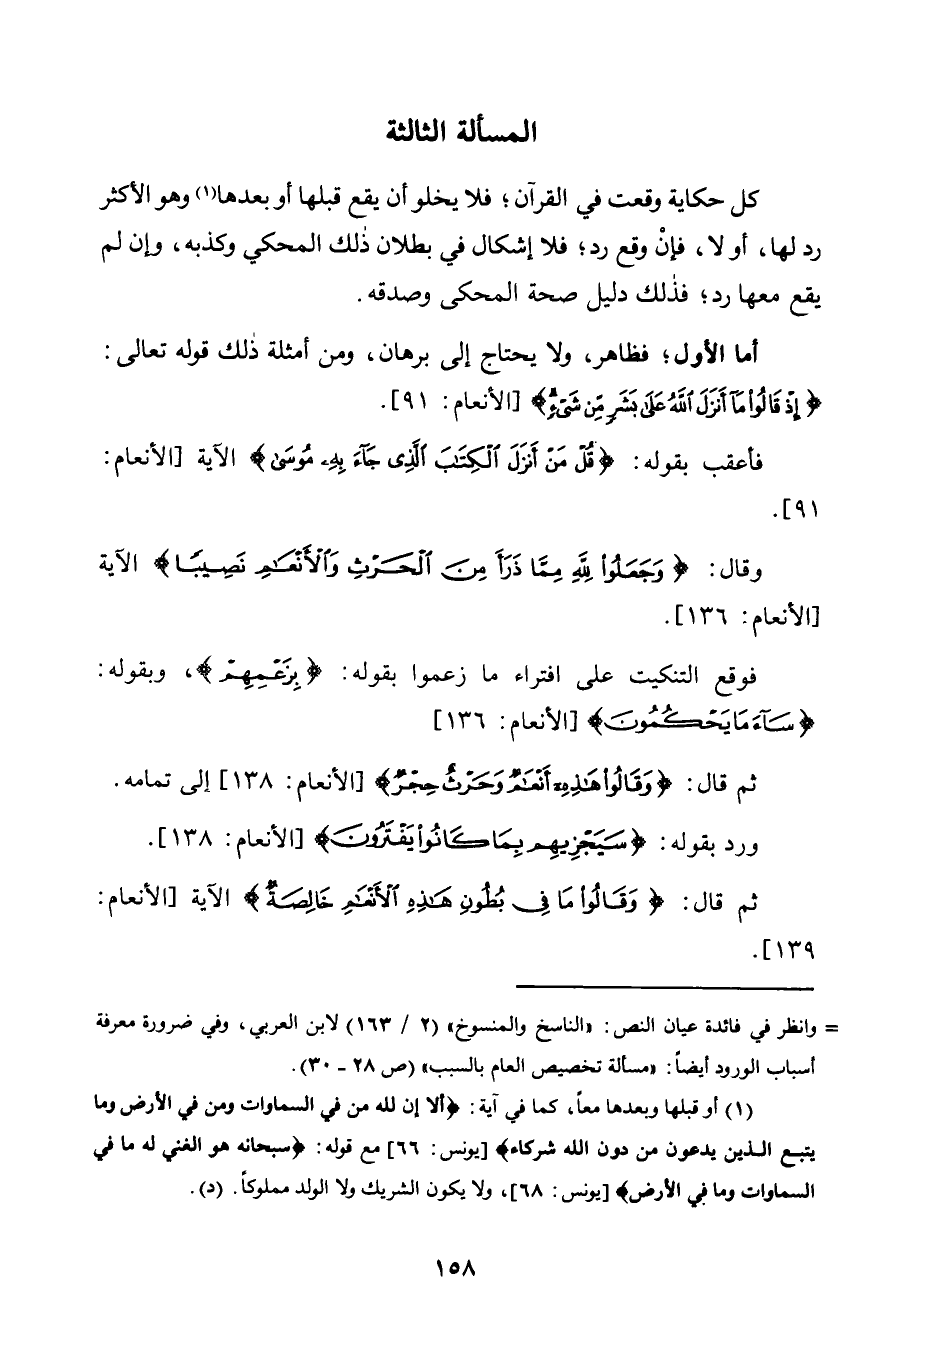 المسألة الثالثة
كل حكاية وقعت في القرآن؛ فلا يخلو أن يقع قبلها أو بعدها(١) وهو الأكثر
رد لها، أو لا، فإنْ وقع رد؛ فلا إشكال في بطلان ذٰلك المحكي وكذبه، وإن لم
يقع معها رد؛ فذٰلك دليل صحة المحكى وصدقه.
أما الأول؛ فظاهر، ولا يحتاج إلى برهان، ومن أمثلة ذٰلك قوله تعالى:
﴿إِذْ قَالُوا۟ مَآ أَنزَلَ ٱللَّهُ عَلَىٰ بَشَرٍ مِّن شَىْءٍ﴾ [الأنعام: ٩١].
فأعقب بقوله: ﴿قُلْ مَنْ أَنزَلَ ٱلْكِتَٰبَ ٱلَّذِى جَآءَ بِهِۦ مُوسَىٰ﴾ الآية [الأنعام:
٩١].
وقال: ﴿وَجَعَلُوا۟ لِلَّهِ مِمَّا ذَرَأَ مِنَ ٱلْحَرْثِ وَٱلْأَنْعَٰمِ نَصِيبًا﴾ الآية
[الأنعام: ١٣٦].
فوقع التنكيت على افتراء ما زعموا بقوله: ﴿بِزَعْمِهِمْ﴾، وبقوله:
﴿سَآءَ مَا يَحْكُمُونَ﴾ [الأنعام: ١٣٦]
ثم قال: ﴿وَقَالُوا۟ هَٰذِهِۦٓ أَنْعَٰمٌ وَحَرْثٌ حِجْرٌ﴾ [الأنعام: ١٣٨] إلى تمامه.
ورد بقوله: ﴿سَيَجْزِيهِم بِمَا كَانُوا۟ يَفْتَرُونَ﴾ [الأنعام: ١٣٨].
ثم قال: ﴿وَقَالُوا۟ مَا فِى بُطُونِ هَٰذِهِ ٱلْأَنْعَٰمِ خَالِصَةٌ﴾ الآية [الأنعام:
١٣٩].
= وانظر في فائدة عيان النص: «الناسخ والمنسوخ» (٢ / ١٦٣) لابن العربي، وفي ضرورة معرفة
أسباب الورود أيضاً: «مسألة تخصيص العام بالسبب» (ص ٢٨ - ٣٠).
(١) أو قبلها وبعدها معاً، كما في آية: ﴿ألا إن لله من في السماوات ومن في الأرض وما
يتبع الذين يدعون من دون الله شركاء﴾ [يونس: ٦٦] مع قوله: ﴿سبحانه هو الغني له ما في
السماوات وما في الأرض﴾ [يونس: ٦٨]، ولا يكون الشريك ولا الولد مملوكاً. (د).
١٥٨